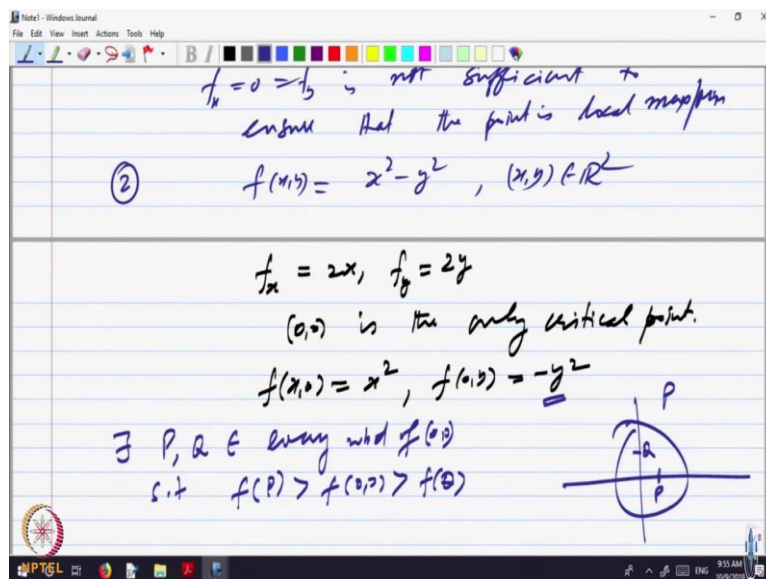 Note1 - Windows Journal
File Edit View Insert Actions Tools Help
B I
fx = 0 = fy is not sufficient to
ensure that the point is local max/min
② f(x,y) = x² - y² , (x,y) ∈ ℝ²
fx = 2x, fy = 2y
(0,0) is the only critical point.
f(x,0) = x², f(0,y) = -y²
P
∃ P, Q ∈ every nhd of (0,0)
Q
s.t f(P) > f(0,0) > f(Q)
P
NPTEL
ENG
9:55 AM
10/9/2019